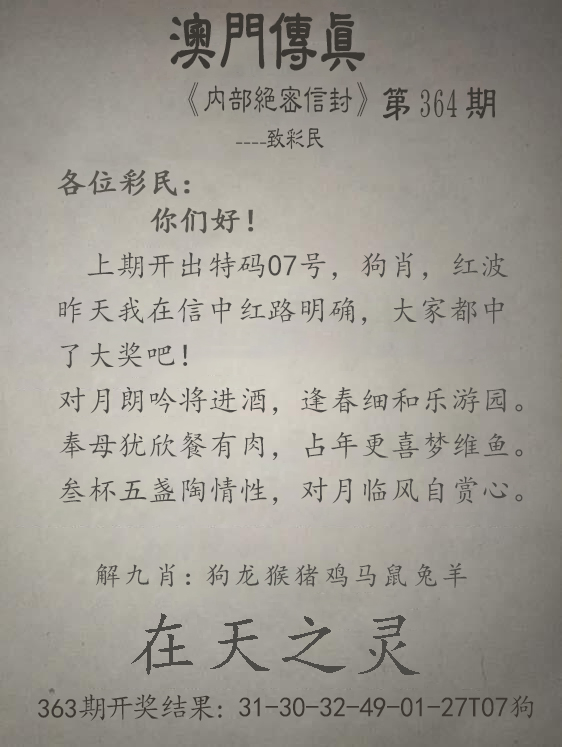 澳門傳眞
《内部絕密信封》第364期
----致彩民
各位彩民：
你们好！
上期开出特码07号，狗肖，红波
昨天我在信中红路明确，大家都中
了大奖吧！
对月朗吟将进酒，逢春细和乐游园。
奉母犹欣餐有肉，占年更喜梦维鱼。
叁杯五盏陶情性，对月临风自赏心。
解九肖：狗龙猴猪鸡马鼠兔羊
在天之灵
363期开奖结果：31-30-32-49-01-27T07狗